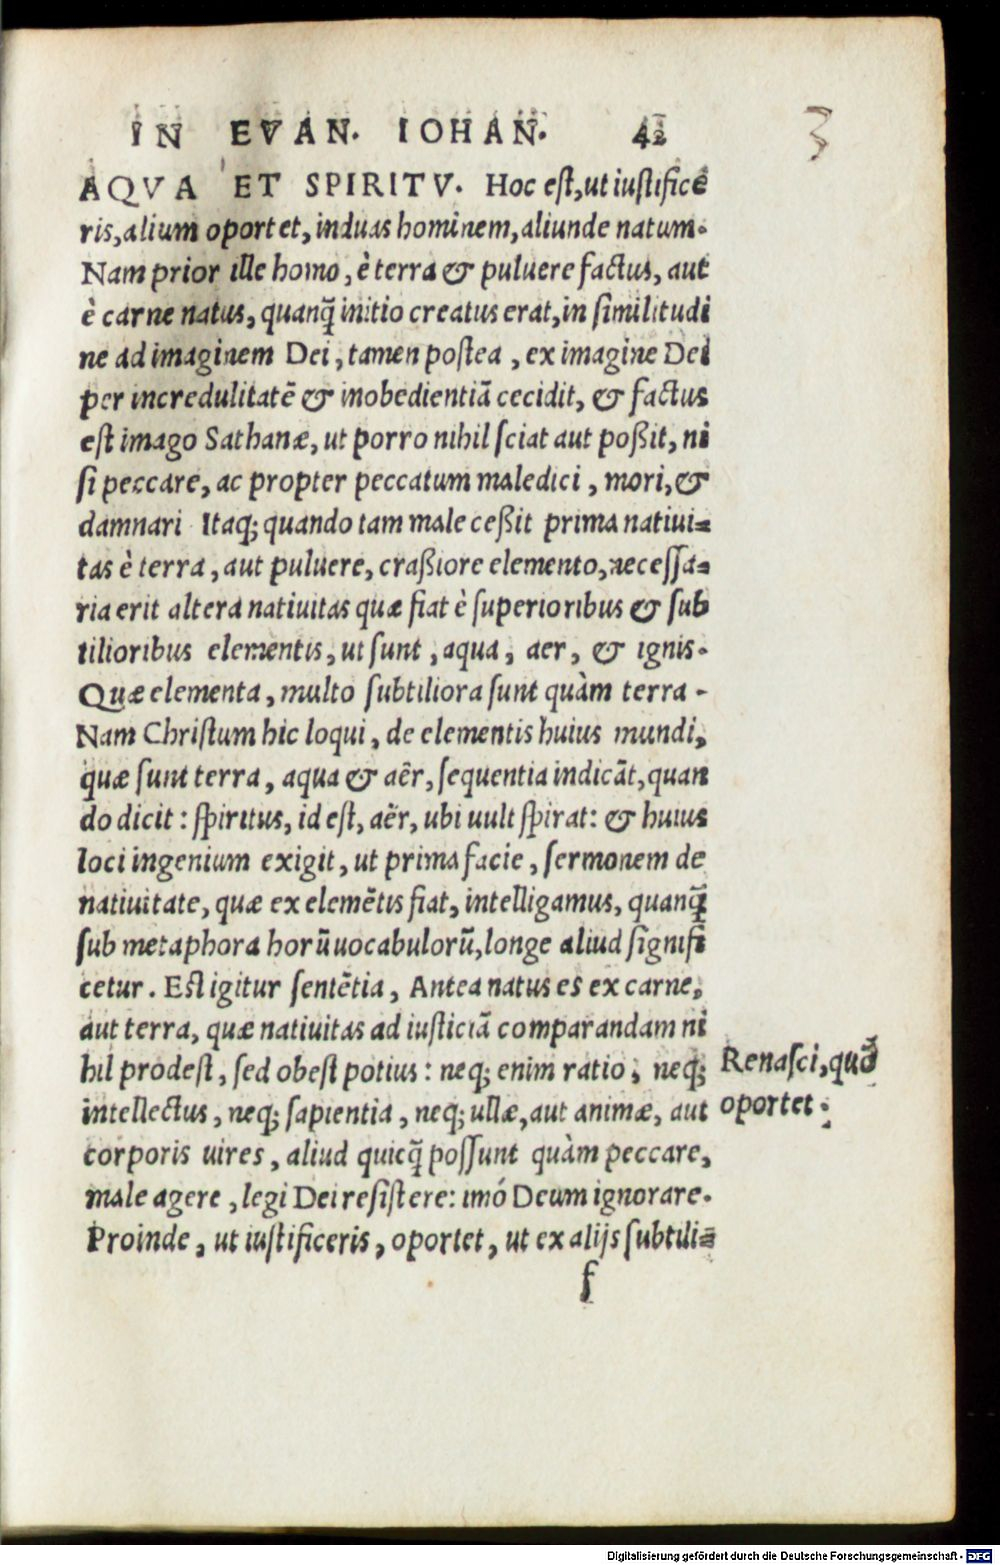 IN EVAN. IOHAN. 42
3
AQVA ET SPIRITV. Hoc est, ut iustifice
ris, alium oportet, induas hominem, aliunde natum.
Nam prior ille homo, è terra & puluere factus, aut
è carne natus, quanq̃ initio creatus erat, in similitudi
ne ad imaginem Dei, tamen postea, ex imagine Dei
per incredulitatē & inobedientiā cecidit, & factus
est imago Sathanæ, ut porro nihil sciat aut poßit, ni
si peccare, ac propter peccatum maledici, mori, &
damnari Itaq; quando tam male ceßit prima natiui=
tas è terra, aut puluere, craßiore elemento, necessa=
ria erit altera natiuitas quæ fiat è superioribus & sub
tilioribus elementis, ut sunt, aqua, aer, & ignis.
Quæ elementa, multo subtiliora sunt quàm terra.
Nam Christum hic loqui, de elementis huius mundi,
quæ sunt terra, aqua & aër, sequentia indicāt, quan
do dicit: spiritus, id est, aër, ubi uult spirat: & huius
loci ingenium exigit, ut prima facie, sermonem de
natiuitate, quæ ex elemētis fiat, intelligamus, quanq̃
sub metaphora horū uocabulorū, longe aliud signifi
cetur. Est igitur sentētia, Antea natus es ex carne,
aut terra, quæ natiuitas ad iusticiā comparandam ni
hil prodest, sed obest potius: neq; enim ratio, neq;
intellectus, neq; sapientia, neq; ullæ, aut animæ, aut
corporis uires, aliud quicq̃ possunt quàm peccare,
male agere, legi Dei resistere: imó Deum ignorare.
Proinde, ut iustificeris, oportet, ut ex alijs subtili=
Renasci, quō
oportet.
f
Digitalisierung gefördert durch die Deutsche Forschungsgemeinschaft - DFG